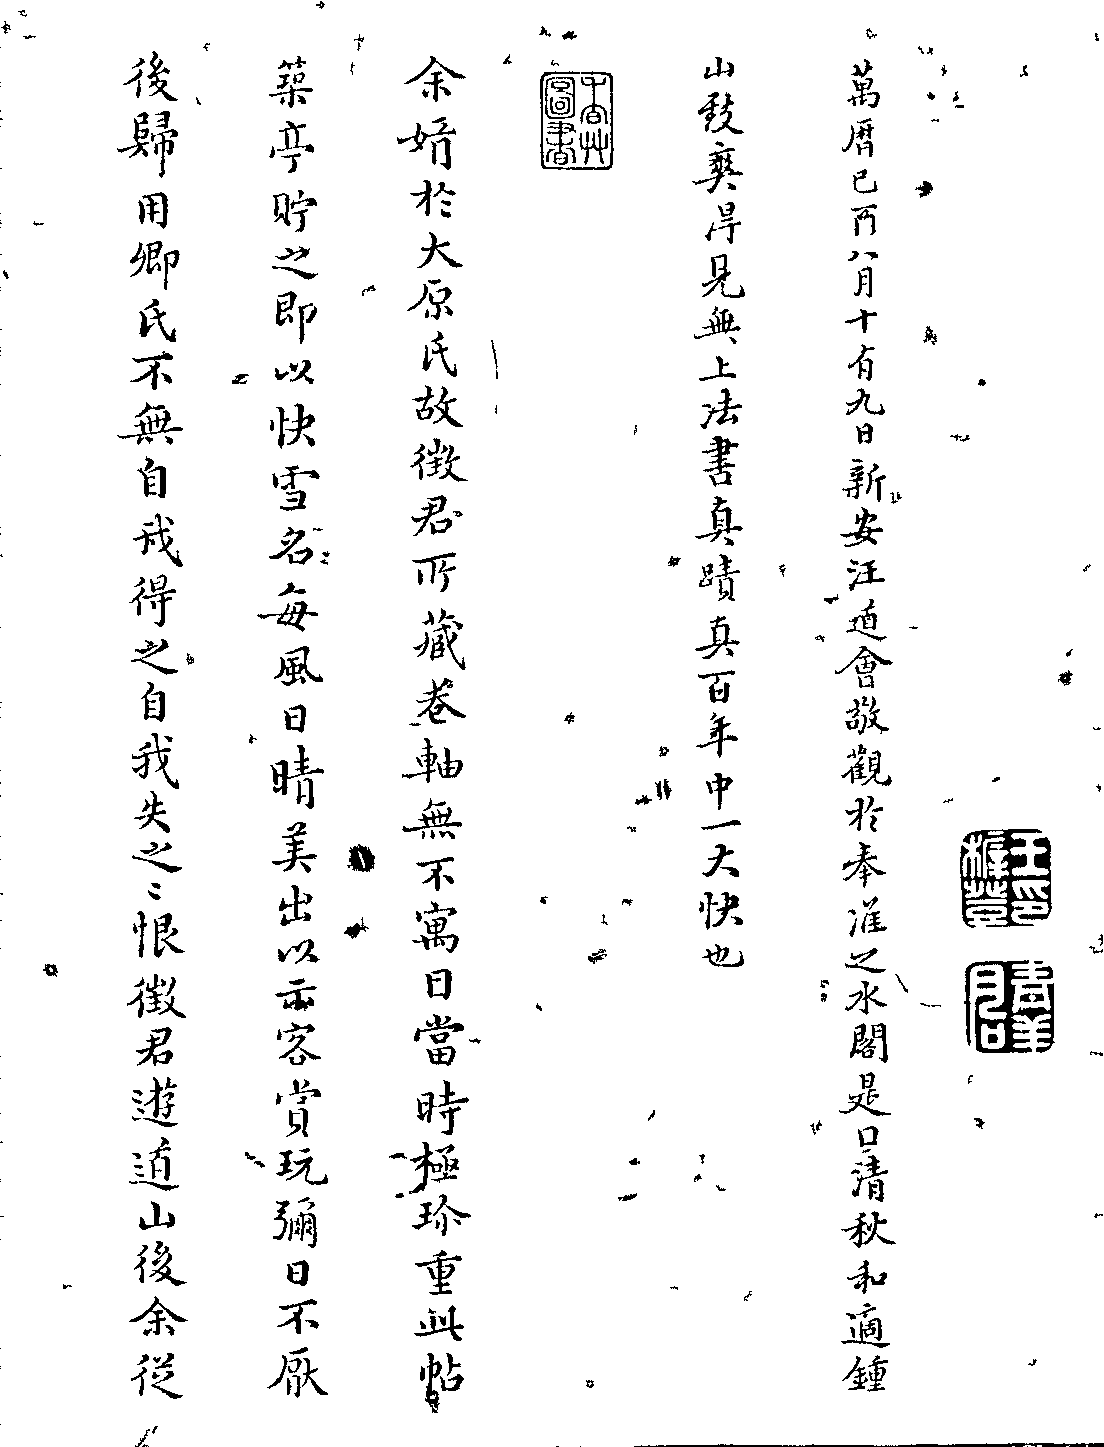 萬曆己酉八月十有九日新安汪道會敬觀於奉淮之水閣是日清秋和適鍾
山致爽淂見無上法書真蹟真百年中一大快也
余婿於大原氏故徵君所藏卷軸無不寓目當時極珍重此帖
築亭貯之即以快雪名每風日晴美出以示客賞玩彌日不厭
後歸用卿氏不無自我得之自我失之〻恨徵君遊道山後余從